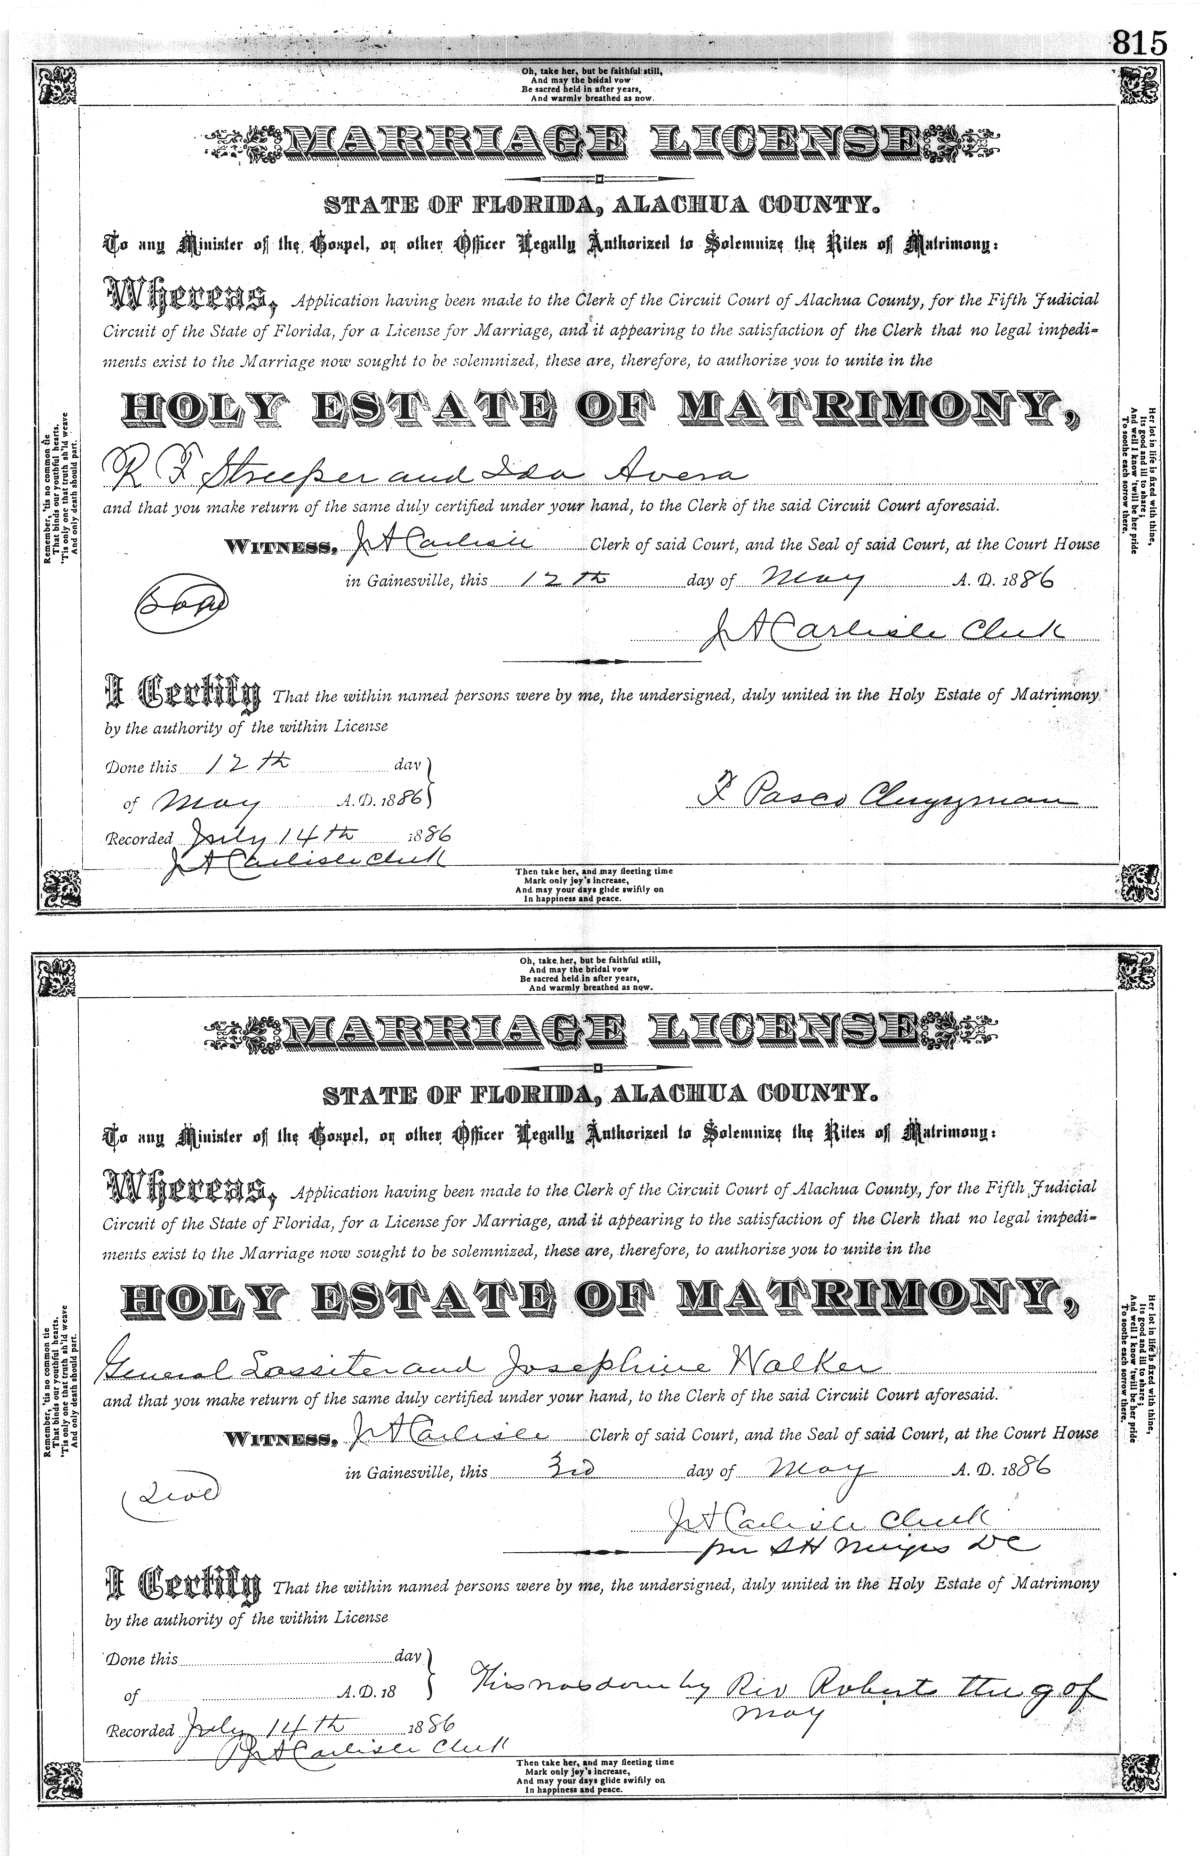 815
Oh, take her, but be faithful still,
And may the bridal vow
Be sacred held in after years,
And warmly breathed as now.
MARRIAGE LICENSE
STATE OF FLORIDA, ALACHUA COUNTY.
To any Minister of the Gospel, or other Officer Legally Authorized to Solemnize the Rites of Matrimony:
Whereas, Application having been made to the Clerk of the Circuit Court of Alachua County, for the Fifth Judicial
Circuit of the State of Florida, for a License for Marriage, and it appearing to the satisfaction of the Clerk that no legal impedi-
ments exist to the Marriage now sought to be solemnized, these are, therefore, to authorize you to unite in the
HOLY ESTATE OF MATRIMONY,
R F Streeper and Ida Avera
and that you make return of the same duly certified under your hand, to the Clerk of the said Circuit Court aforesaid.
WITNESS, J A Carlisle Clerk of said Court, and the Seal of said Court, at the Court House
in Gainesville, this 12th day of May A. D. 1886
J A Carlisle Clerk
I Certify That the within named persons were by me, the undersigned, duly united in the Holy Estate of Matrimony
by the authority of the within License
Done this 12th day
of May A.D. 1886
F Pasco Clergyman
Recorded July 14th 1886
J A Carlisle Clerk
Remember, 'tis no common tie
That binds our youthful hearts.
'Tis only one that truth sh'ld weave
And only death should part.
Her lot in life is fixed with thine,
Its good and ill to share;
And well I know 'twill be her pride
To soothe each sorrow there.
Then take her, and may fleeting time
Mark only joy's increase,
And may your days glide swiftly on
In happiness and peace.
Oh, take her, but be faithful still,
And may the bridal vow
Be sacred held in after years,
And warmly breathed as now.
MARRIAGE LICENSE
STATE OF FLORIDA, ALACHUA COUNTY.
To any Minister of the Gospel, or other Officer Legally Authorized to Solemnize the Rites of Matrimony:
Whereas, Application having been made to the Clerk of the Circuit Court of Alachua County, for the Fifth Judicial
Circuit of the State of Florida, for a License for Marriage, and it appearing to the satisfaction of the Clerk that no legal impedi-
ments exist to the Marriage now sought to be solemnized, these are, therefore, to authorize you to unite in the
HOLY ESTATE OF MATRIMONY,
General Lassiter and Josephine Walker
and that you make return of the same duly certified under your hand, to the Clerk of the said Circuit Court aforesaid.
WITNESS, J A Carlisle Clerk of said Court, and the Seal of said Court, at the Court House
in Gainesville, this 3rd day of May A. D. 1886
(Seal)
J A Carlisle Clerk
per S H DC
I Certify That the within named persons were by me, the undersigned, duly united in the Holy Estate of Matrimony
by the authority of the within License
Done this day
of A.D. 18
This was done by Rev Roberts the 9 of
May
Recorded July 14th 1886
J A Carlisle Clerk
Remember, 'tis no common tie
That binds our youthful hearts.
'Tis only one that truth sh'ld weave
And only death should part.
Her lot in life is fixed with thine,
Its good and ill to share;
And well I know 'twill be her pride
To soothe each sorrow there.
Then take her, and may fleeting time
Mark only joy's increase,
And may your days glide swiftly on
In happiness and peace.